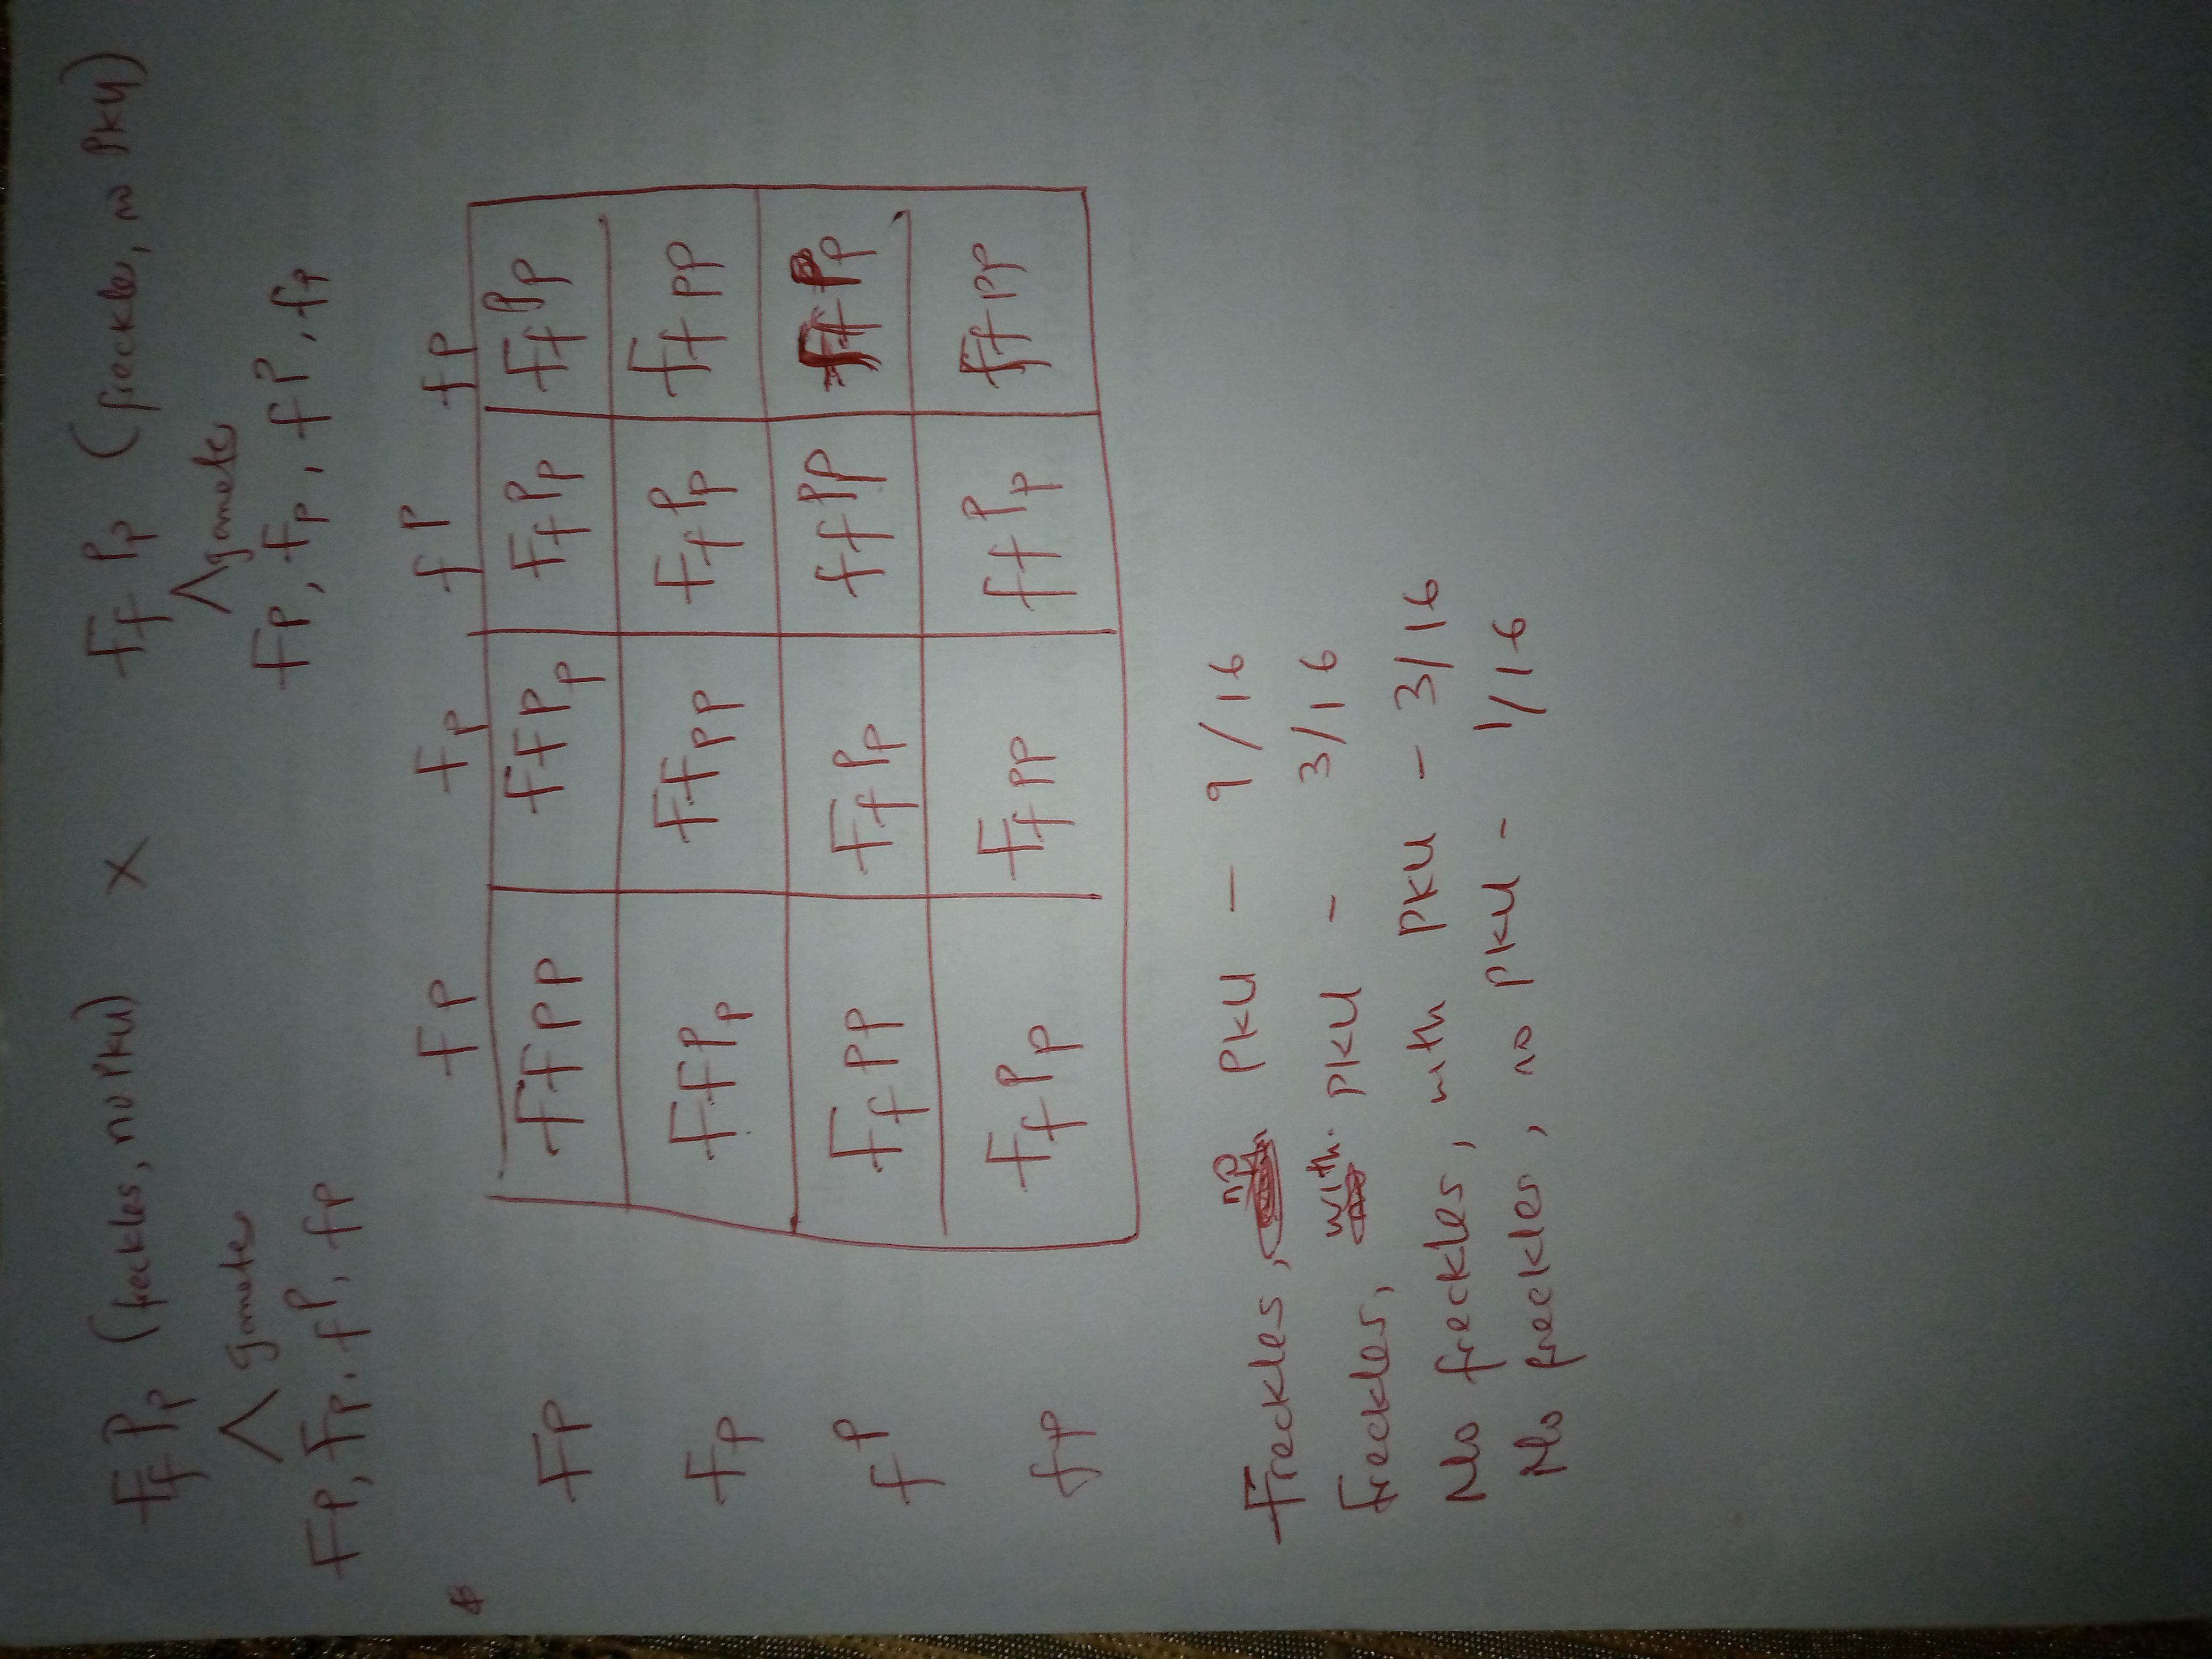 Ff Pp (freckles, no PKU) X Ff Pp (freckles, no PKU)
gamete gamete
FP, Fp, fP, fp FP, Fp, fP, fp
FP Fp fP fp
FP FFPP FFPp FfPp FfPp
Fp FFPp FFpp FfPp Ffpp
fP FfPP FfPp ffPP ffPp
fp FfPp Ffpp ffPp ffpp
Freckles, no PKU - 9/16
Freckles, with PKU - 3/16
No freckles, with PKU - 3/16
No freckles, no PKU - 1/16